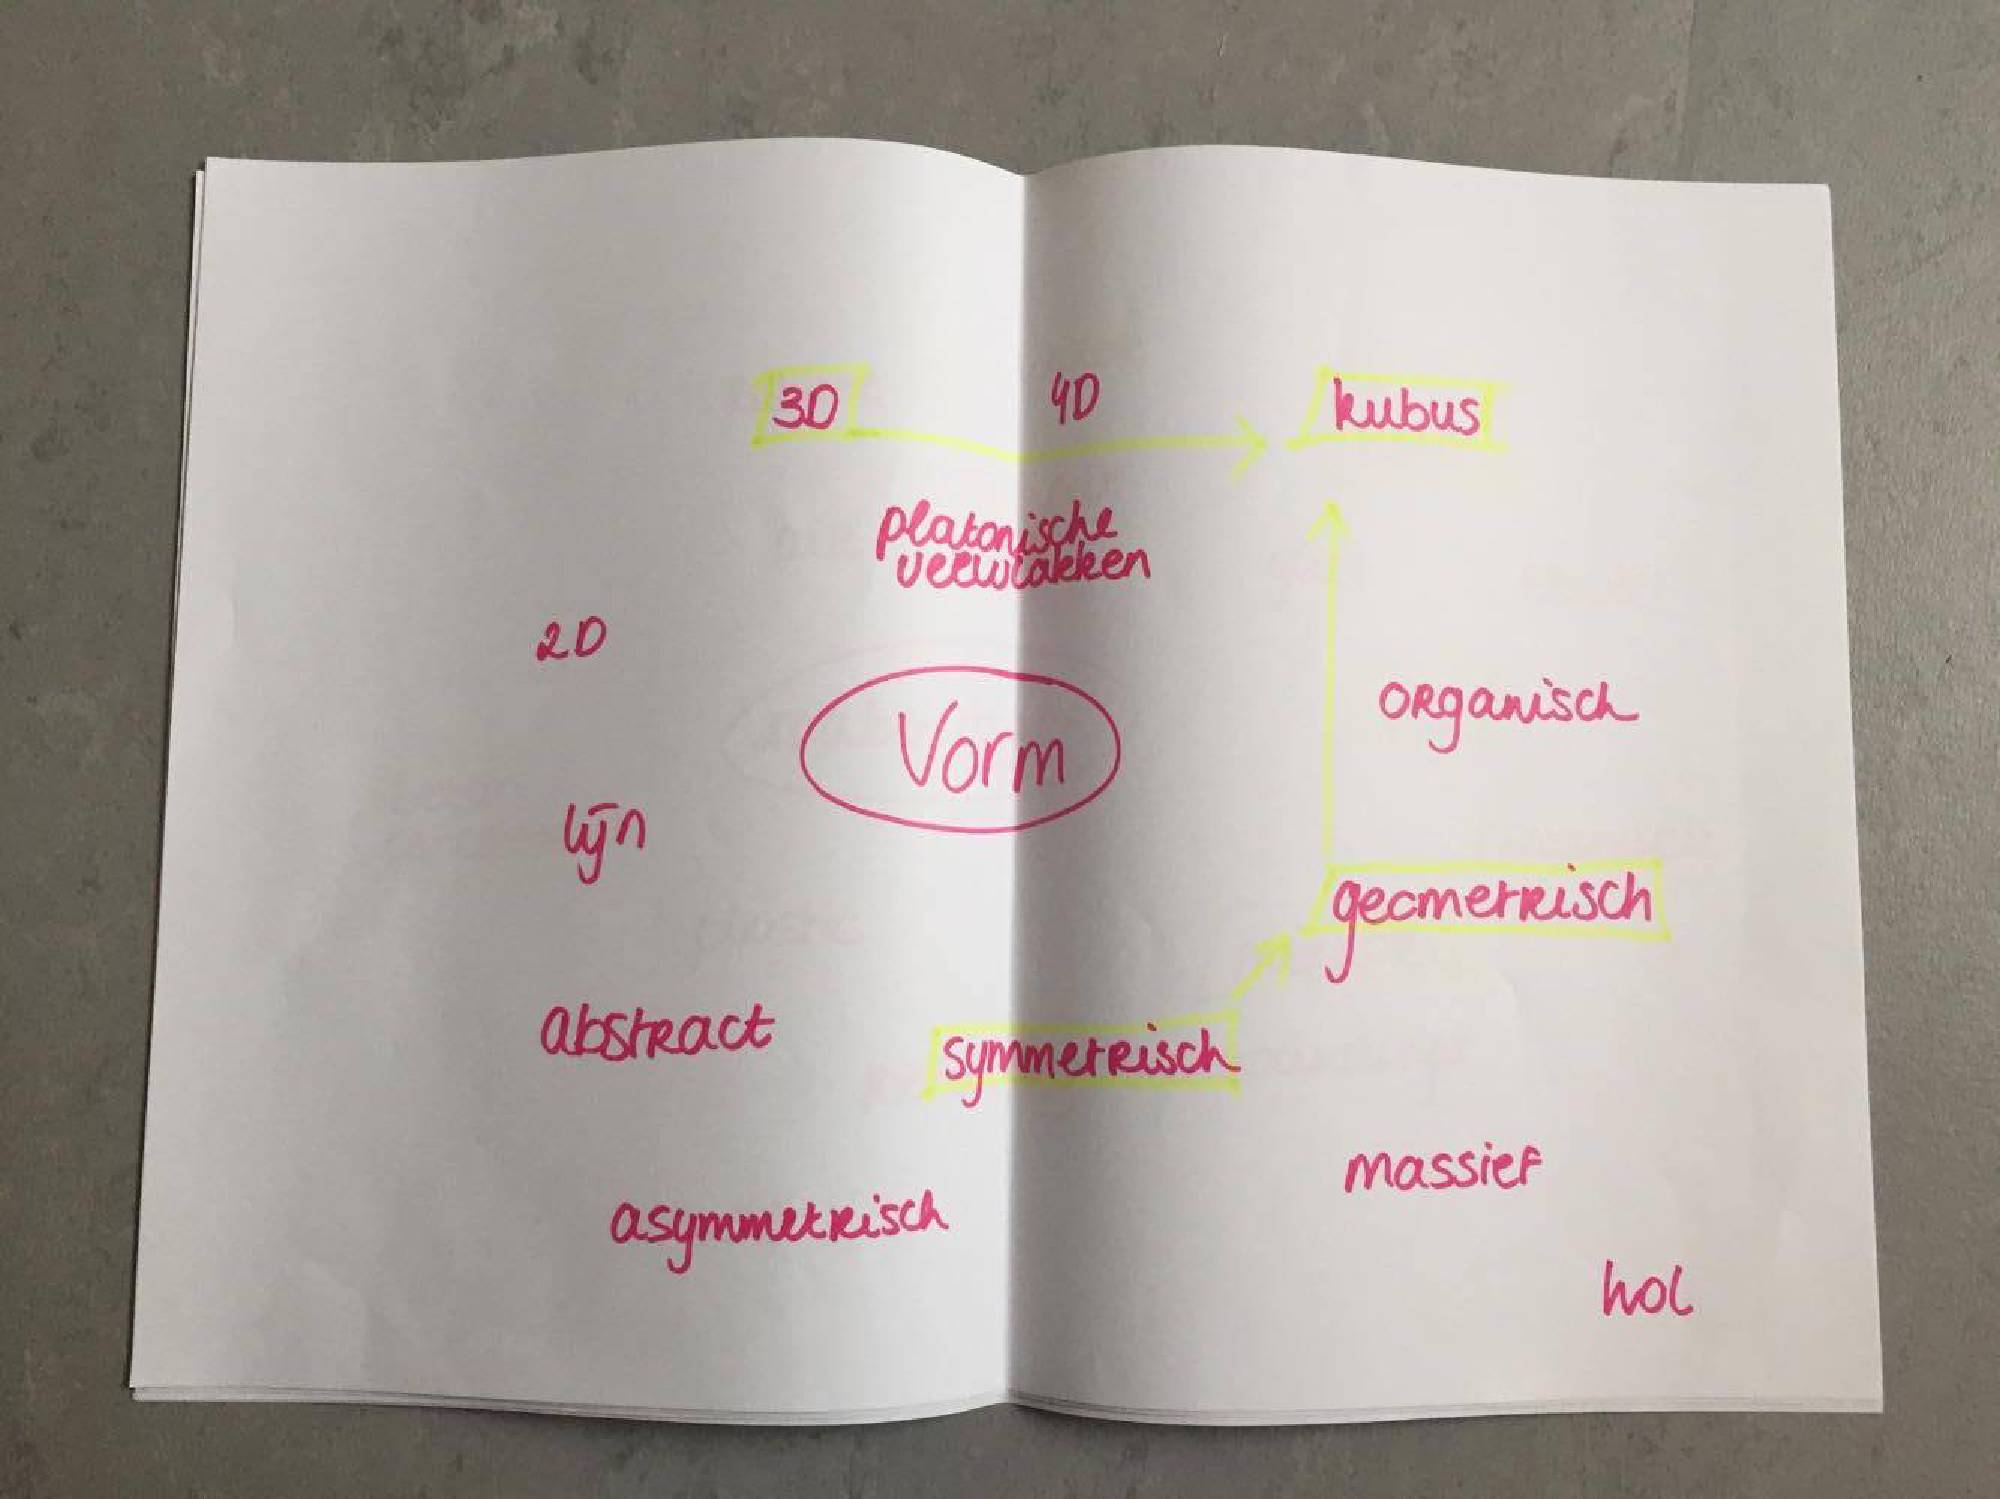 3D
4D
kubus
platonische
veelvlakken
2D
Vorm
organisch
lijn
geometrisch
abstract
symmetrisch
massief
asymmetrisch
hol